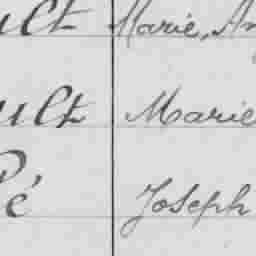 ult Marie, An
ult Marie
é Joseph